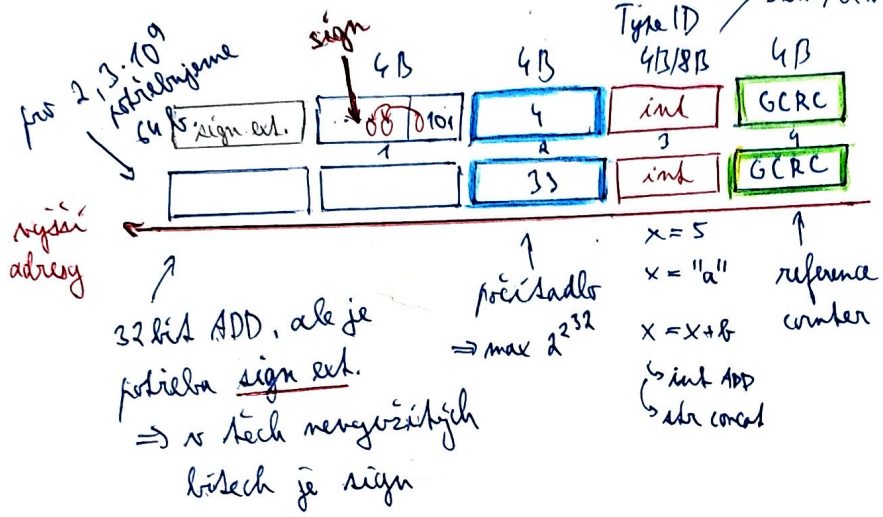 sign
Type ID
pro 2,3·10⁹
potřebujeme
64 b
4B
4B
4B/8B
4B
sign ext.
00
0101
4
int
GCRC
1
2
3
4
35
int
GCRC
vyšší
adresy
32 bit ADD, ale je
potřeba sign ext.
⇒ v těch nevyužitých
bitech je sign
počítadlo
⇒ max 2^2^32
x = 5
x = "a"
x = x+b
↳ int ADD
↳ str concat
reference
counter